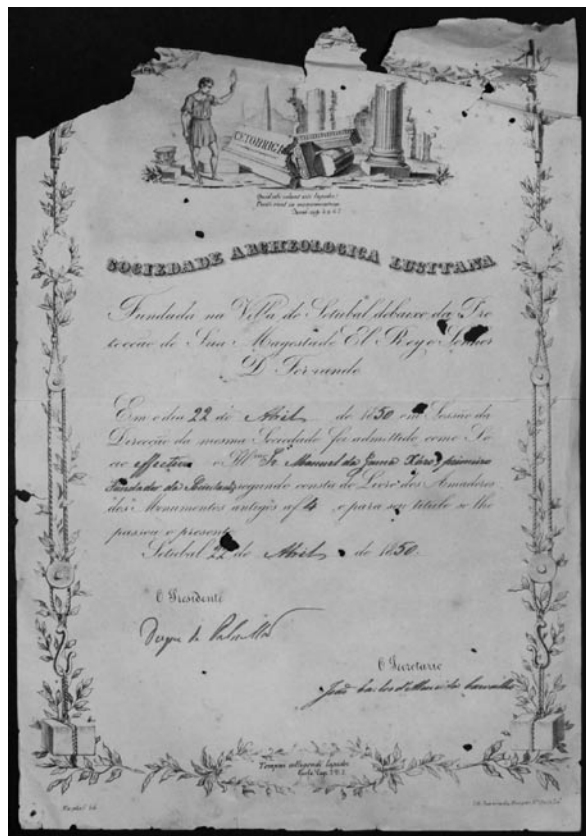 CETOBRIGA
Quid sibi volunt isti lapides?
SOCIEDADE ARCHEOLOGICA LUSITANA
Fundada na Villa de Setubal debaixo da Pro
tecção de Sua Magestade El Rey o Senhor
D. Fernando
Em o dia 22 de Abril de 1850 em Sessão da
Direcção da mesma Sociedade foi admittido como So
cio effectivo o Illmo Sr. Manuel da Gama Xaro primeiro
fundador da Sociedade segundo consta do Livro dos Amadores
dos Monumentos antigos a f 4, e para seu titulo se lhe
passou o presente
Setubal 22 de Abril de 1850.
O Presidente
Duque de Palmella
O Secretario
João Carlos d'Almeida Carvalho
Tempus colligendi lapides